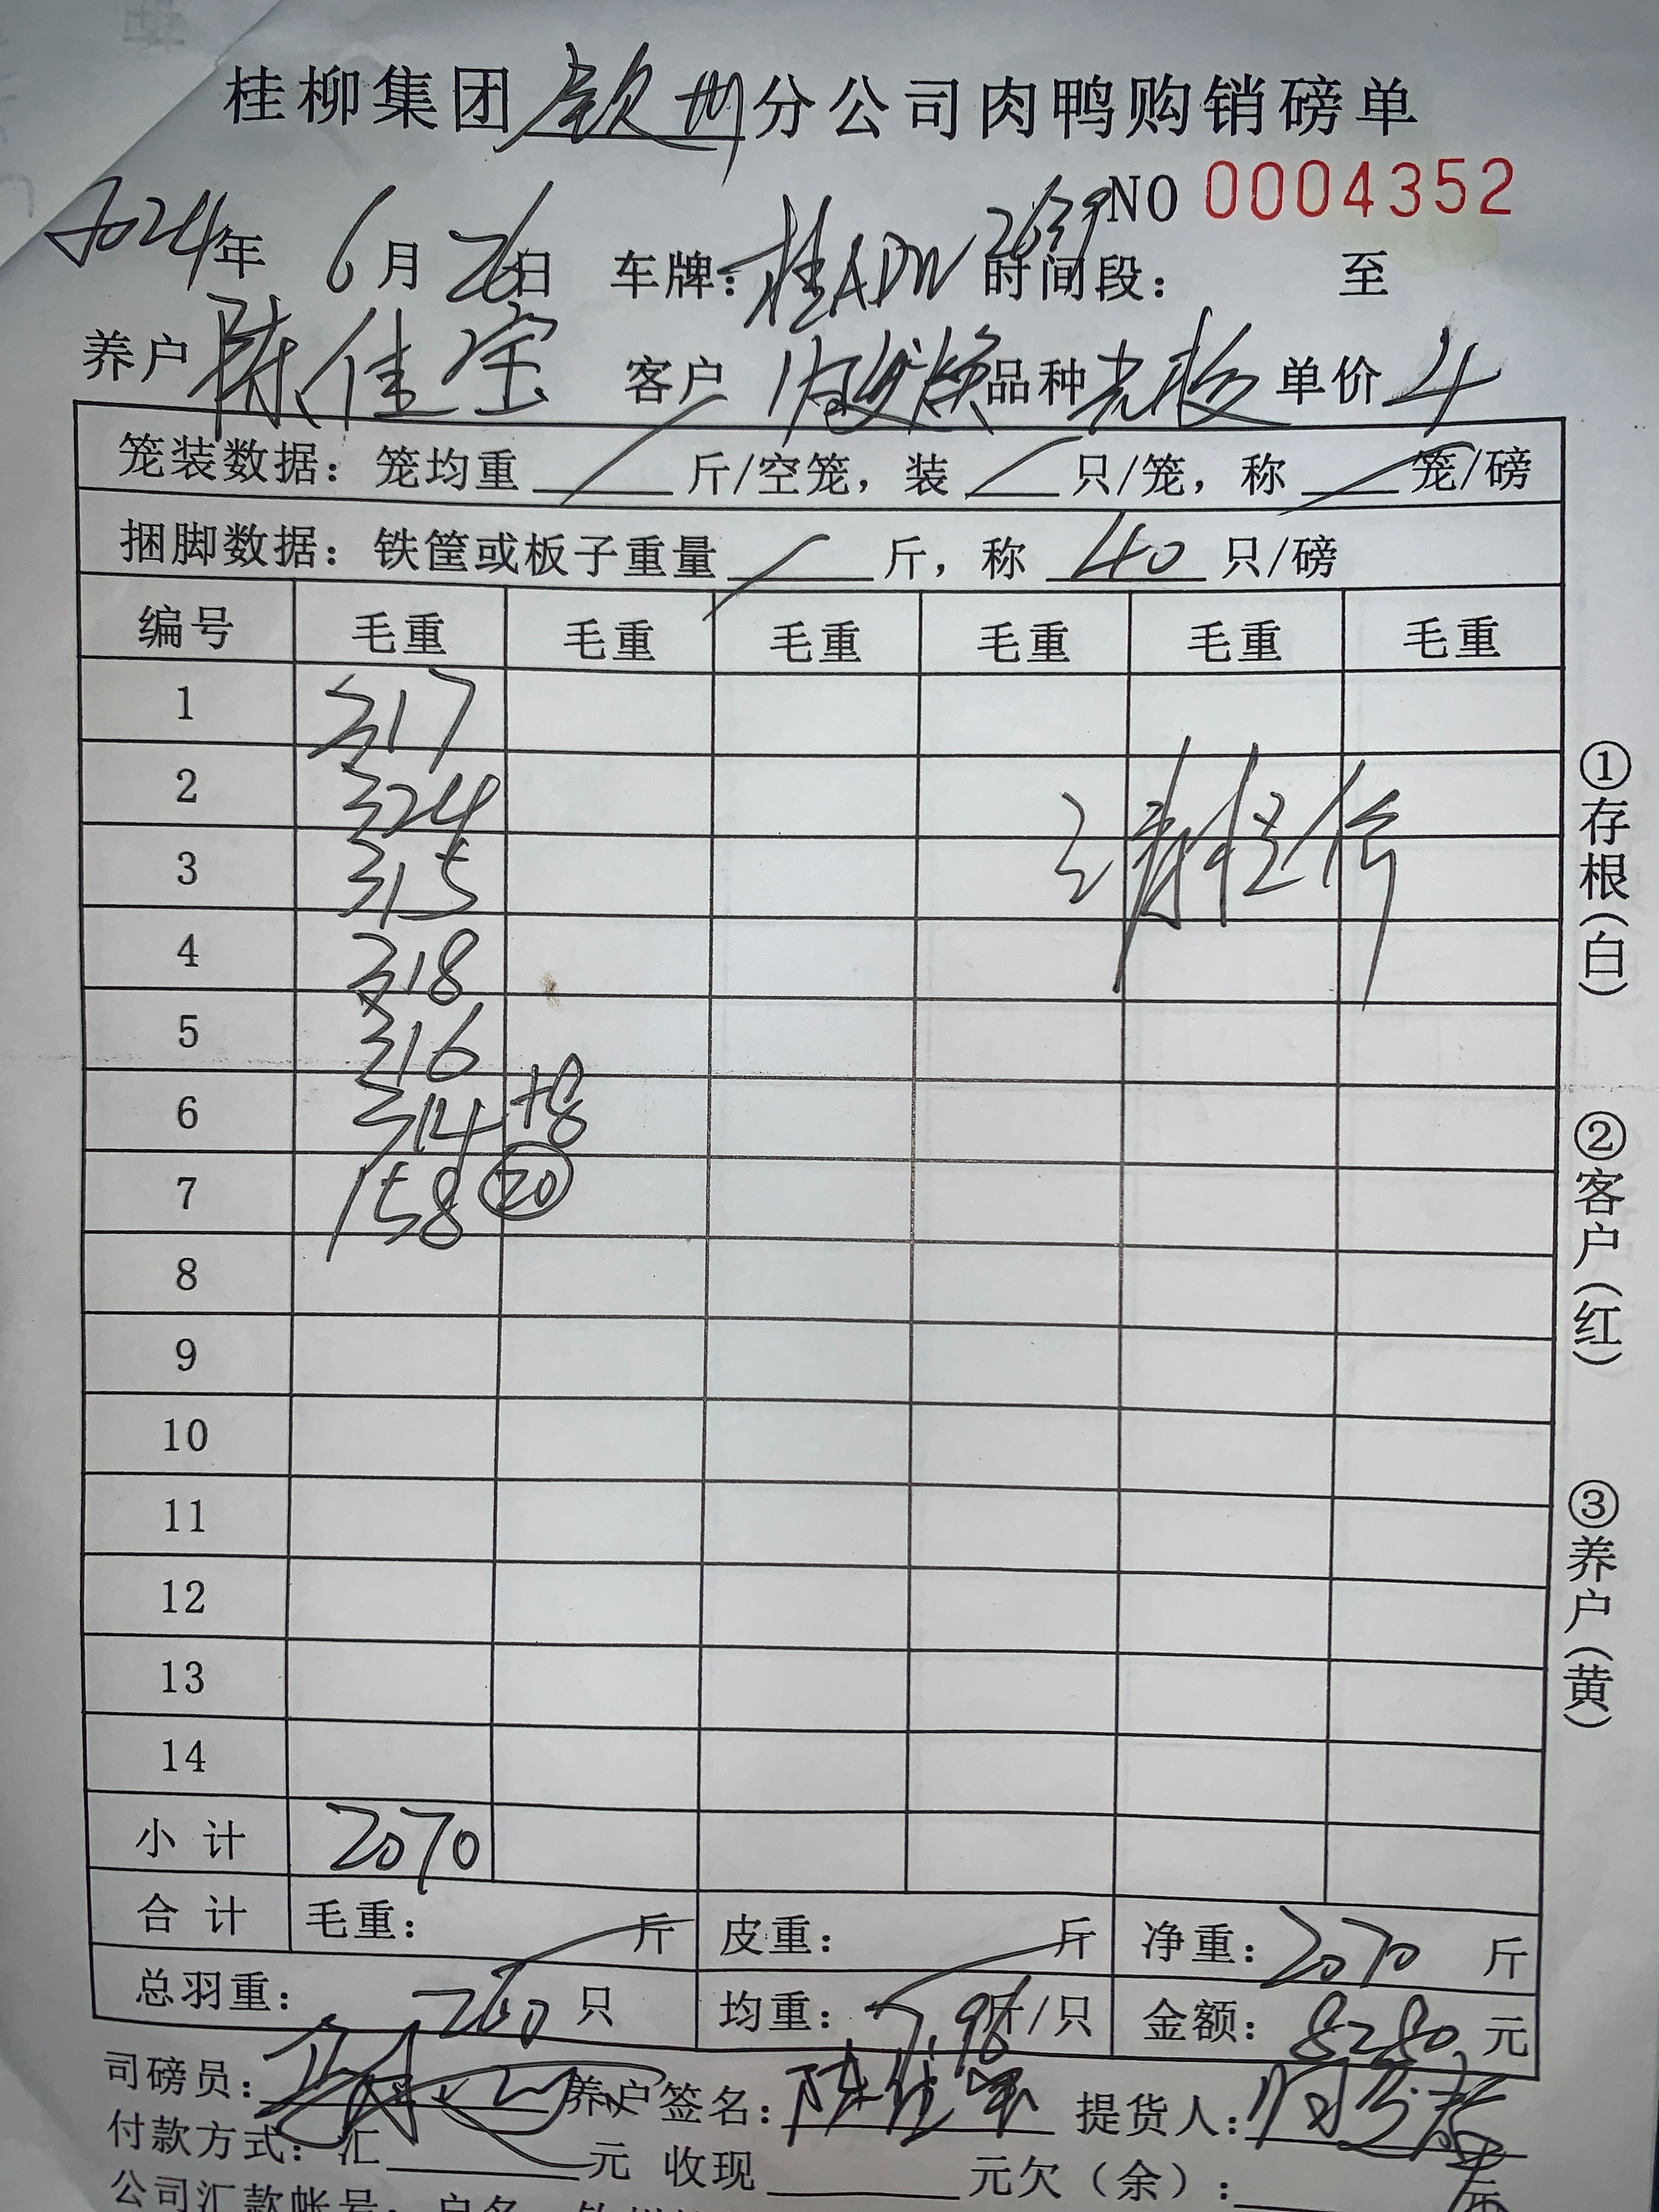 桂柳集团钦州分公司肉鸭购销磅单
NO 0004352
2024年 6月 26日 车牌:桂ADW2639 时间段: 至
养户 陈佳宝 客户 品种 单价 4
笼装数据: 笼均重 斤/空笼, 装 只/笼, 称 笼/磅
捆脚数据: 铁筐或板子重量 斤, 称 40 只/磅
编号 毛重 毛重 毛重 毛重 毛重 毛重
1 317
2 324
3 315
4 318
5 316
6 314 +8
7 158 20
8
9
10
11
12
13
14
小计 2070
合计 毛重: 斤 皮重: 斤 净重: 2070 斤
总羽重: 260 只 均重: 7.96斤/只 金额: 8280 元
司磅员: 养户签名: 陈佳宝 提货人:
付款方式: 汇 元 收现 元欠(余): 元
公司汇款帐号: 户名
①存根(白)
②客户(红)
③养户(黄)